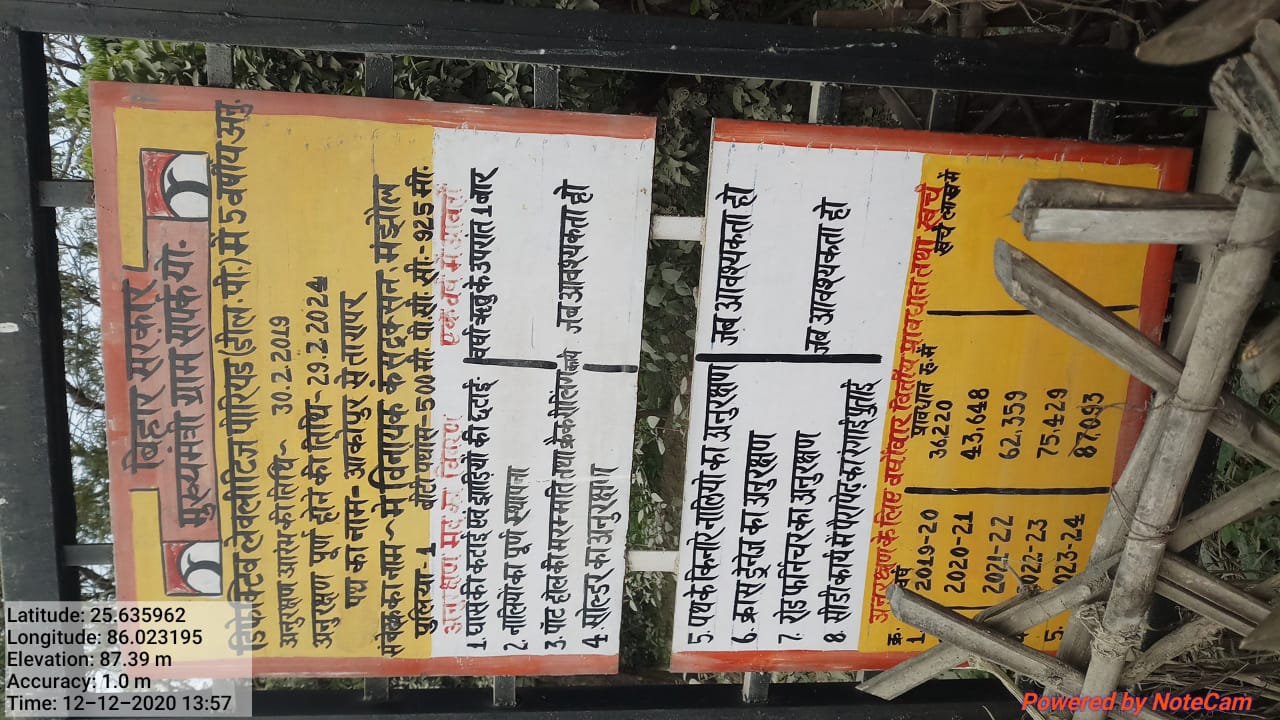 बिहार सरकार
मुख्यमंत्री ग्राम संर्पक यो.
डिफेक्टिव लेवलीटिज पीरियड (डी.ल.पी.) में 5 वर्षीय अनु.
अनुरक्षण आरंभ की तिथि- 30.2.2019
अनुरक्षण पूर्ण होने की तिथि- 29.2.2024
पथ का नाम- आकोपुर से तारापर
संवेदक का नाम- मे विनायक कंसट्रक्सन मंझौल
पुलिया- 1 बेटी पथांस- 500 मी. पी.सी.सी.- 925 मी.
अनुरक्षण मद का विवरण एक वर्ष में आवर्ती
1. घास की कटाई एवं झाड़ियों की छटाई- वर्षा ऋतु के उपरांत 1 बार
2. नालियों का पूर्ण स्थापना
3. पॉट होल की मरम्मति तथा क्रैक सीलिंग कार्य जब आवश्यकता हो
4. सोल्डर का अनुरक्षण
5. पथ के किनारे नालियों का अनुरक्षण जब आवश्यकता हो
6. क्रास ड्रेनेज का अनुरक्षण
7. रोड फर्निचर का अनुरक्षण जब आवश्यकता हो
8. सीडी कार्य में पैरापेड का रंगाई पुताई
अनुरक्षण के लिए वर्षावार वित्तीय प्रावधान तथा खर्च
क्र. वर्ष प्रावधान रु. में खर्च लाख में
1. 2019-20 36.220
2020-21 43.648
2021-22 62.359
2022-23 75.429
5. 2023-24 87.093
Latitude: 25.635962
Longitude: 86.023195
Elevation: 87.39 m
Accuracy: 1.0 m
Time: 12-12-2020 13:57
Powered by NoteCam